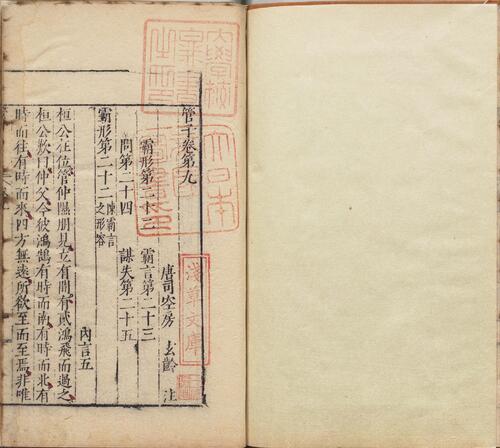 管子卷第九
唐司空房 玄齡 注
霸形第二十二 霸言第二十三
問第二十四 謀失第二十五
霸形第二十二 陳霸言之形容 內言五
桓公在位管仲隰朋見立有間有貳鴻飛而過之
桓公歎曰仲父今彼鴻鵠有時而南有時而北有
時而往有時而來四方無遠所欲至而至焉非唯
大日本
淺草文庫